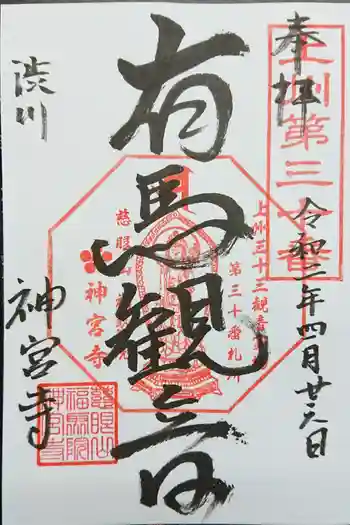 奉拝
上州第三十番
令和二年四月廿六日
有馬観音
上州三十三観音
第三十番札所
慈眼山
神宮寺
渋川
神宮寺
慈眼山
福聚院
神宮寺